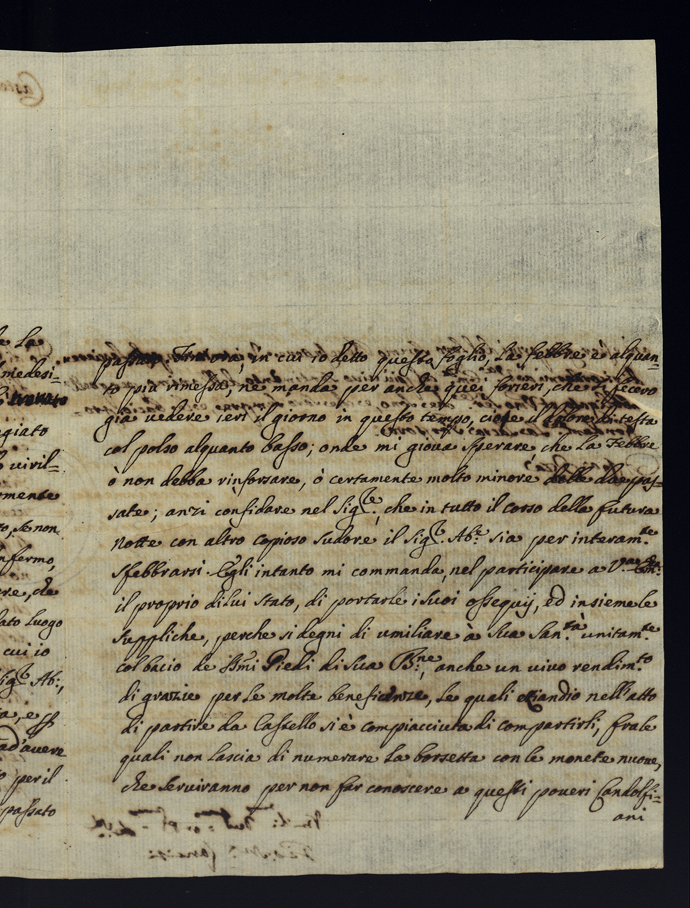 Casto
e la
medesi-
trovato
egiato
o viril-
amente
to, se non
nfermo,
ere, che
ato luogo
cui io
Sig.r Ab:,
ia, e
d'avere
o per il
passato
passata. Finora, in cui io detto questo foglio, la febbre è alquan-
to più rimessa, ne manda per anche quei forieri, che si fecero
già vedere ieri il giorno in questo tempo, cioè il dolore di testa
col polso alquanto basso; onde mi giova sperare, che la Febbre
ò non debba rinforzare, ò certamente molto minore delle due pas-
sate; anzi confidare nel Sig.re, che in tutto il corso della futura
notte con altro copioso sudore il Sig.r Ab.e sia per interam.te
sfebbrarsi. Egli intanto mi commanda, nel participare a V.
il proprio di lui stato, di portarle i suoi ossequij, ed insieme le
suppliche, perche si degni di umiliare à Sua San.tà unitam.te
col bacio de SS.mi Piedi di Sua B.ne, anche un vivo rendim.to
di grazie per le molte beneficenze, le quali eziandio nell'atto
di partire da Castello si è compiacciuta di compartirli, frale
quali non lascia di numerare la borsetta con le monete nuove,
che serviranno per non far conoscere a questi poveri Gandolfi-
ani